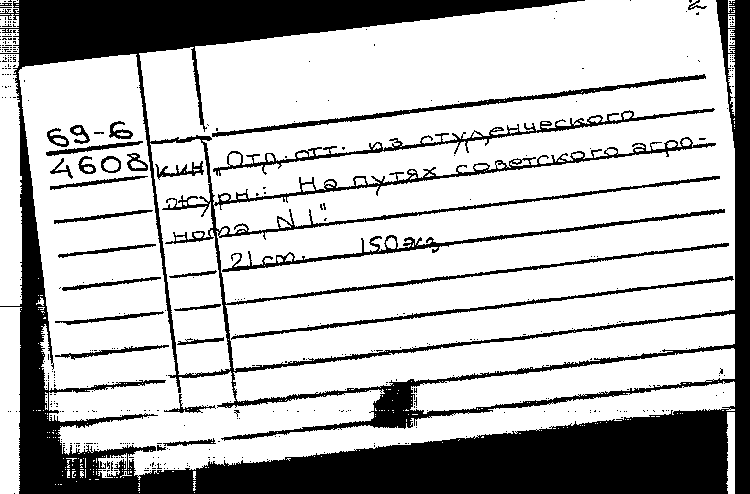 2
69-6
4608 кин „Отд. отт. из студенческого
журн.: „На путях советского агро-
нома, N 1".
21 см. 150 экз.